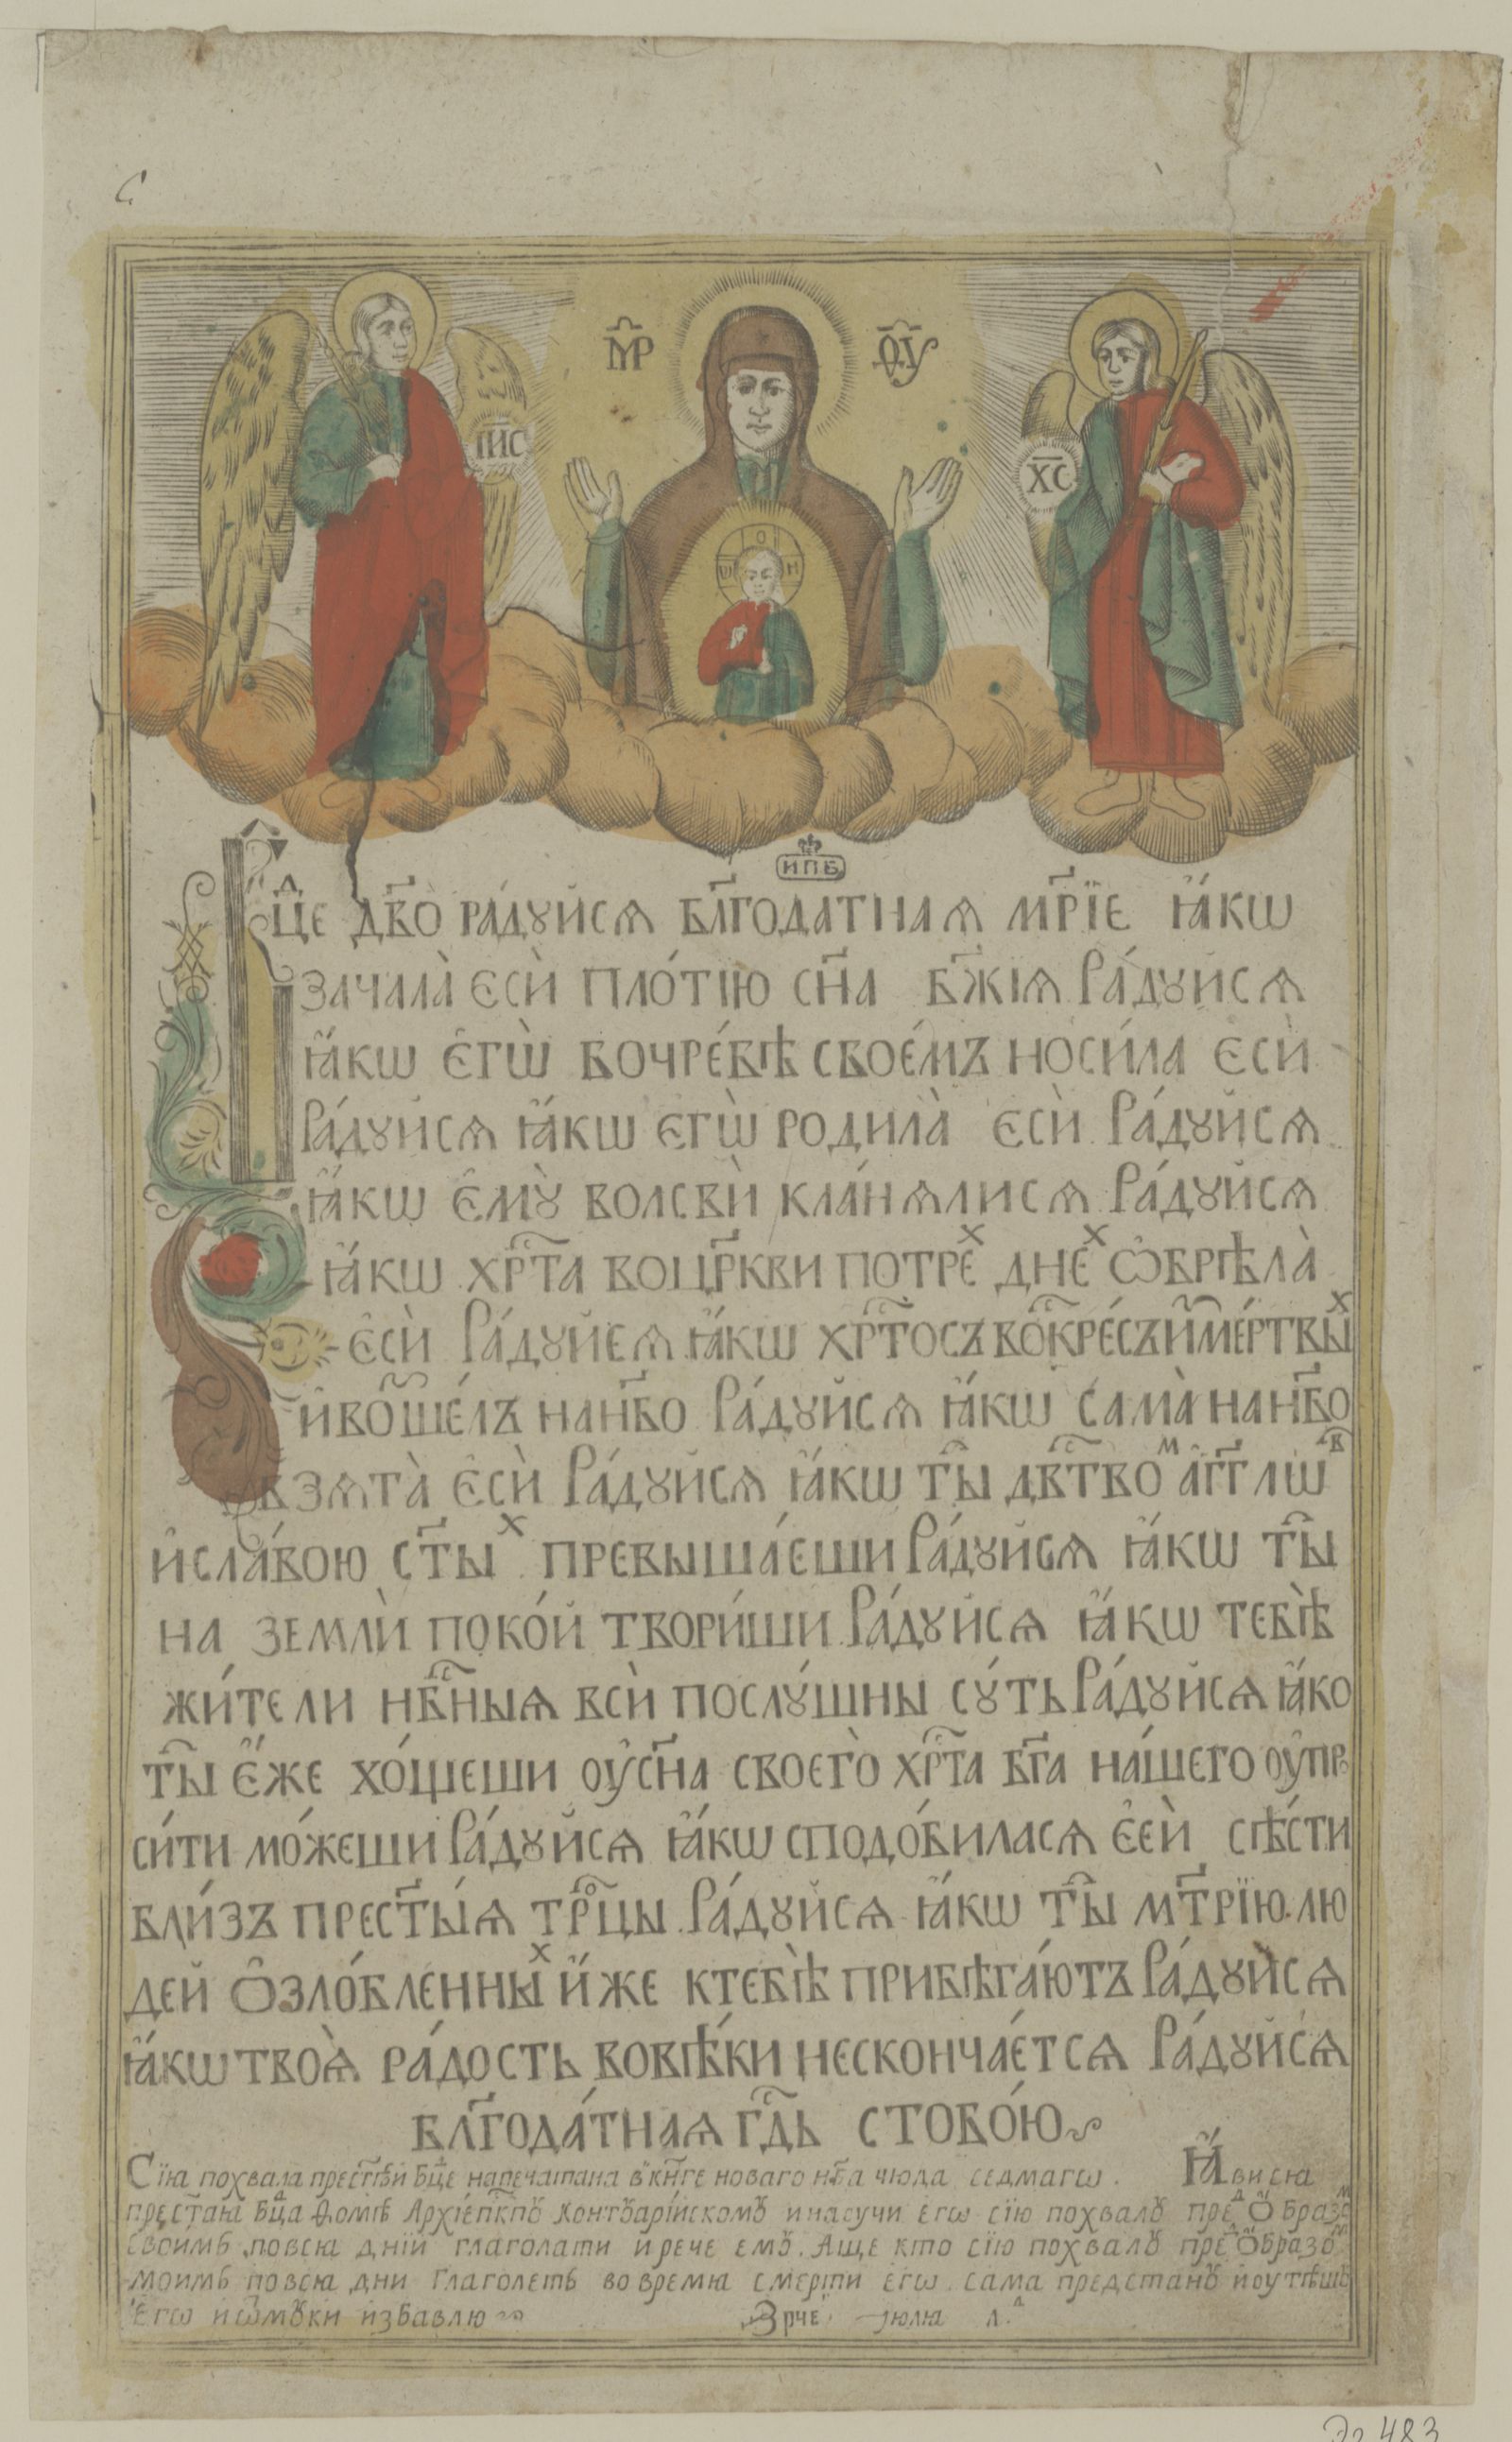 М҃Р Ѳ҃Ꙋ
І҃ИС Х҃С
Ѡ О Н
ИПБ
Бц҃де дв҃о ра́дуйсѧ бл҃годатнаѧ мр҃їе ꙗ҆́кѡ
зачала̀ єсѝ пло́тїю сн҃а бж҃їѧ Ра́дуйсѧ
ꙗ҆́кѡ є҆гѡ̀ вочре́вѣ свое́мъ носи́ла єсѝ
Ра́дуйсѧ ꙗ҆́кѡ є҆гѡ̀ родила̀ єсѝ Ра́дуйсѧ
ꙗ҆́кѡ є҆мꙋ̀ волсвѝ кла́нѧлисѧ Ра́дуйсѧ
ꙗ҆́кѡ хрⷭ҇та воцр҃кви потре́ⷯ дне́ⷯ ѡ҆брѣла̀
є҆сѝ Ра́дуйсѧ ꙗ҆́кѡ хрⷭ҇тосъ воⷭ҇кре́съ и҆ме́ртвыⷯ
и҆воⷥше́лъ нанб҃о Ра́дуйсѧ ꙗ҆́кѡ сама̀ нанб҃о
взѧта̀ є҆сѝ Ра́дуйсѧ ꙗ҆́кѡ ты̑ двⷭ҇твоⷨ а҆́гг҃лѡⷡ
и҆сла́вою ст҃ыⷯ превыша́еши Ра́дуйсѧ ꙗ҆́кѡ ты̑
на землѝ поко́й твори́ши Ра́дуйсѧ ꙗ҆́кѡ тебѣ̀
жи́тели нбⷭ҇ныѧ всѝ послу́шны су́ть Ра́дуйсѧ ꙗ҆́ко
ты̑ є҆́же хо́щеши оу҆сн҃а своего̀ хрⷭ҇та бг҃а на́шего оу҆про
си́ти мо́жеши Ра́дуйсѧ ꙗ҆́кѡ сподо́биласѧ є҆сѝ сѣ́сти
бли́зъ прест҃ы́ѧ трⷪ҇цы Ра́дуйсѧ ꙗ҆́кѡ ты̑ мт҃рїю лю
дей ѻ҆зло́бленныⷯ и҆́же ктебѣ̀ прибѣга́ютъ Ра́дуйсѧ
ꙗ҆́кѡ твоѧ̀ ра́дость вовѣ́ки нескончае́тсѧ Ра́дуйсѧ
бл҃года́тнаѧ гдⷭ҇ь стобо́ю
Сїꙗ похвала прест҃ѣй Бц҃де напечатана в кн҃ге новаго нб҃а чюда седмагѡ. Ꙗ҆́висѧ
прест҃аꙗ Бц҃да Ѳомѣ Архїепк҃пꙋ Контꙋарїйскомꙋ инаꙋчи егѡ сїю похвалꙋ преⷣ Ѻбразоⷨ
своимъ повсꙗ днїй глаголати ирече емꙋ. Аще кто сїю похвалꙋ преⷣ Ѻбразоⷨ
моимъ повсꙗ дни глаголетъ вовремꙗ смерти егѡ. сама предстанꙋ и оутѣшꙋ
Егѡ иѿмꙋки избавлю ҂Зрче июлꙗ л.
Эл 483